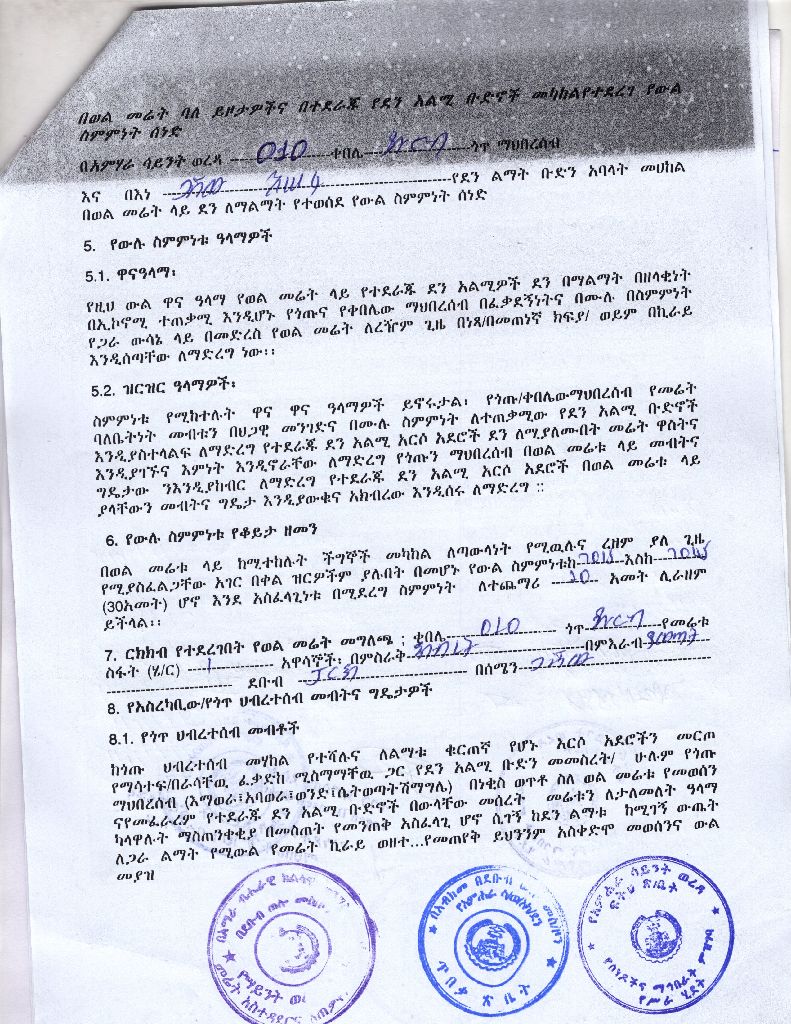 በወል መሬት ባለ ይዞታዎችና በተደራጁ የደን አልሚ ቡድኖች መካከልየተደረገ የውል
ስምምነት ሰነድ
በአምሃራ ሳይንት ወረዳ 010 ቀበሌ ጎጥ ማህበረሰብ
እና በእነ የደን ልማት ቡድን አባላት መሀከል
በወል መሬት ላይ ደን ለማልማት የተወሰደ የውል ስምምነት ሰነድ
5. የውሉ ስምምነቱ ዓላማዎች
5.1. ዋናዓላማ፡
የዚህ ውል ዋና ዓላማ የወል መሬት ላይ የተደራጁ ደን አልሚዎች ደን በማልማት በዘላቂነት
በኢኮኖሚ ተጠቃሚ እንዲሆኑ የጎጡና የቀበሌው ማህበረሰብ በፈቃደኝነትና በሙሉ በስምምነት
የጋራ ውሳኔ ላይ በመድረስ የወል መሬት ለረዥም ጊዜ በነጻ/በመጠነኛ ክፍያ/ ወይም በኪራይ
እንዲሰጣቸው ለማድረግ ነው፡፡
5.2. ዝርዝር ዓላማዎች፡
ስምምነቱ የሚከተሉት ዋና ዋና ዓላማዎች ይኖሩታል፤ የጎጡ/ቀበሌውማህበረሰብ የመሬት
ባለቤትነት መብቱን በህጋዊ መንገድና በሙሉ ስምምነት ለተጠቃሚው የደን አልሚ ቡድኖች
እንዲያስተላልፍ ለማድረግ የተደራጁ ደን አልሚ አርሶ አደሮች ደን ለሚያለሙበት መሬት ዋስትና
እንዲያገኙና እምነት እንዲኖራቸው ለማድረግ የጎጡን ማህበረሰብ በወል መሬቱ ላይ መብትና
ግዴታው ንእንዲያከብር ለማድረግ የተደራጁ ደን አልሚ አርሶ አደሮች በወል መሬቱ ላይ
ያላቸውን መብትና ግዴታ እንዲያውቁና አክብረው እንዲሰሩ ለማድረግ ::
6. የውሉ ስምምነቱ የቆይታ ዘመን
በወል መሬቱ ላይ ከሚተከሉት ችግኞች መካከል ለጣውላነት የሚዉሉና ረዘም ያለ ጊዜ
የሚያስፈልጋቸው አገር በቀል ዝርዎችም ያሉበት በመሆኑ የውል ስምምነቱከ እስከ
(30አመት) ሆኖ እንደ አስፈላጊነቱ በሚደረግ ስምምነት ለተጨማሪ 10 አመት ሊራዘም
ይችላል፡፡
7. ርክክብ የተደረገበት የወል መሬት መግለጫ ; ቀበሌ 010 ጎጥ የመሬቱ
ስፋት (ሄ/ር) 1 አዋሳኞች፡ በምስራቅ በምእራብ
ደቡብ በሰሜን
8. የአስረካቢው/የጎጥ ህብረተሰብ መብትና ግዴታዎች
8.1. የጎጥ ህብረተሰብ መብቶች
ከጎጡ ህብረተሰብ መሃከል የተሻሉና ለልማቱ ቁርጠኛ የሆኑ አርሶ አደሮችን መርጦ
የማሳተፍ/በራሳቸዉ ፈቃድከ ሚስማማቸዉ ጋር የደን አልሚ ቡድን መመስረት/ ሁሉም የጎጡ
ማህበረሰብ (እማወራ፤አባወራ፤ወንድ፤ሴትወጣት፤ሽማግሌ) በነቂስ ወጥቶ ስለ ወል መሬቱ የመወሰን
ናየመፈራረም የተደራጁ ደን አልሚ ቡድኖች በውላቸው መሰረት መሬቱን ለታለመለት ዓላማ
ካላዋሉት ማስጠንቀቂያ በመስጠት የመንጠቅ አስፈላጊ ሆኖ ሲገኝ ከደን ልማቱ ከሚገኝ ውጤት
ለጋራ ልማት የሚውል የመሬት ኪራይ ወዘተ...የመጠየቅ ይህንንም አስቀድሞ መወሰንና ውል
መያዝ